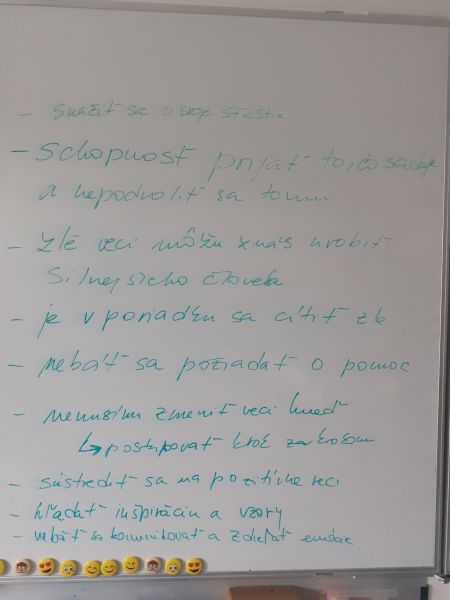 - snažiť sa o svoje šťastie
- schopnosť prijať to, čo sa deje
a nepodvoliť sa tomu
- zlé veci môžu z nás urobiť
silnejšieho človeka
- je v poriadku sa cítiť zle
- nebáť sa požiadať o pomoc
- nemusím zmeniť veci hneď
↳ postupovať krok za krokom
- sústrediť sa na pozitívne veci
- hľadať inšpiráciu a vzory
- nebáť sa komunikovať a zdieľať emócie